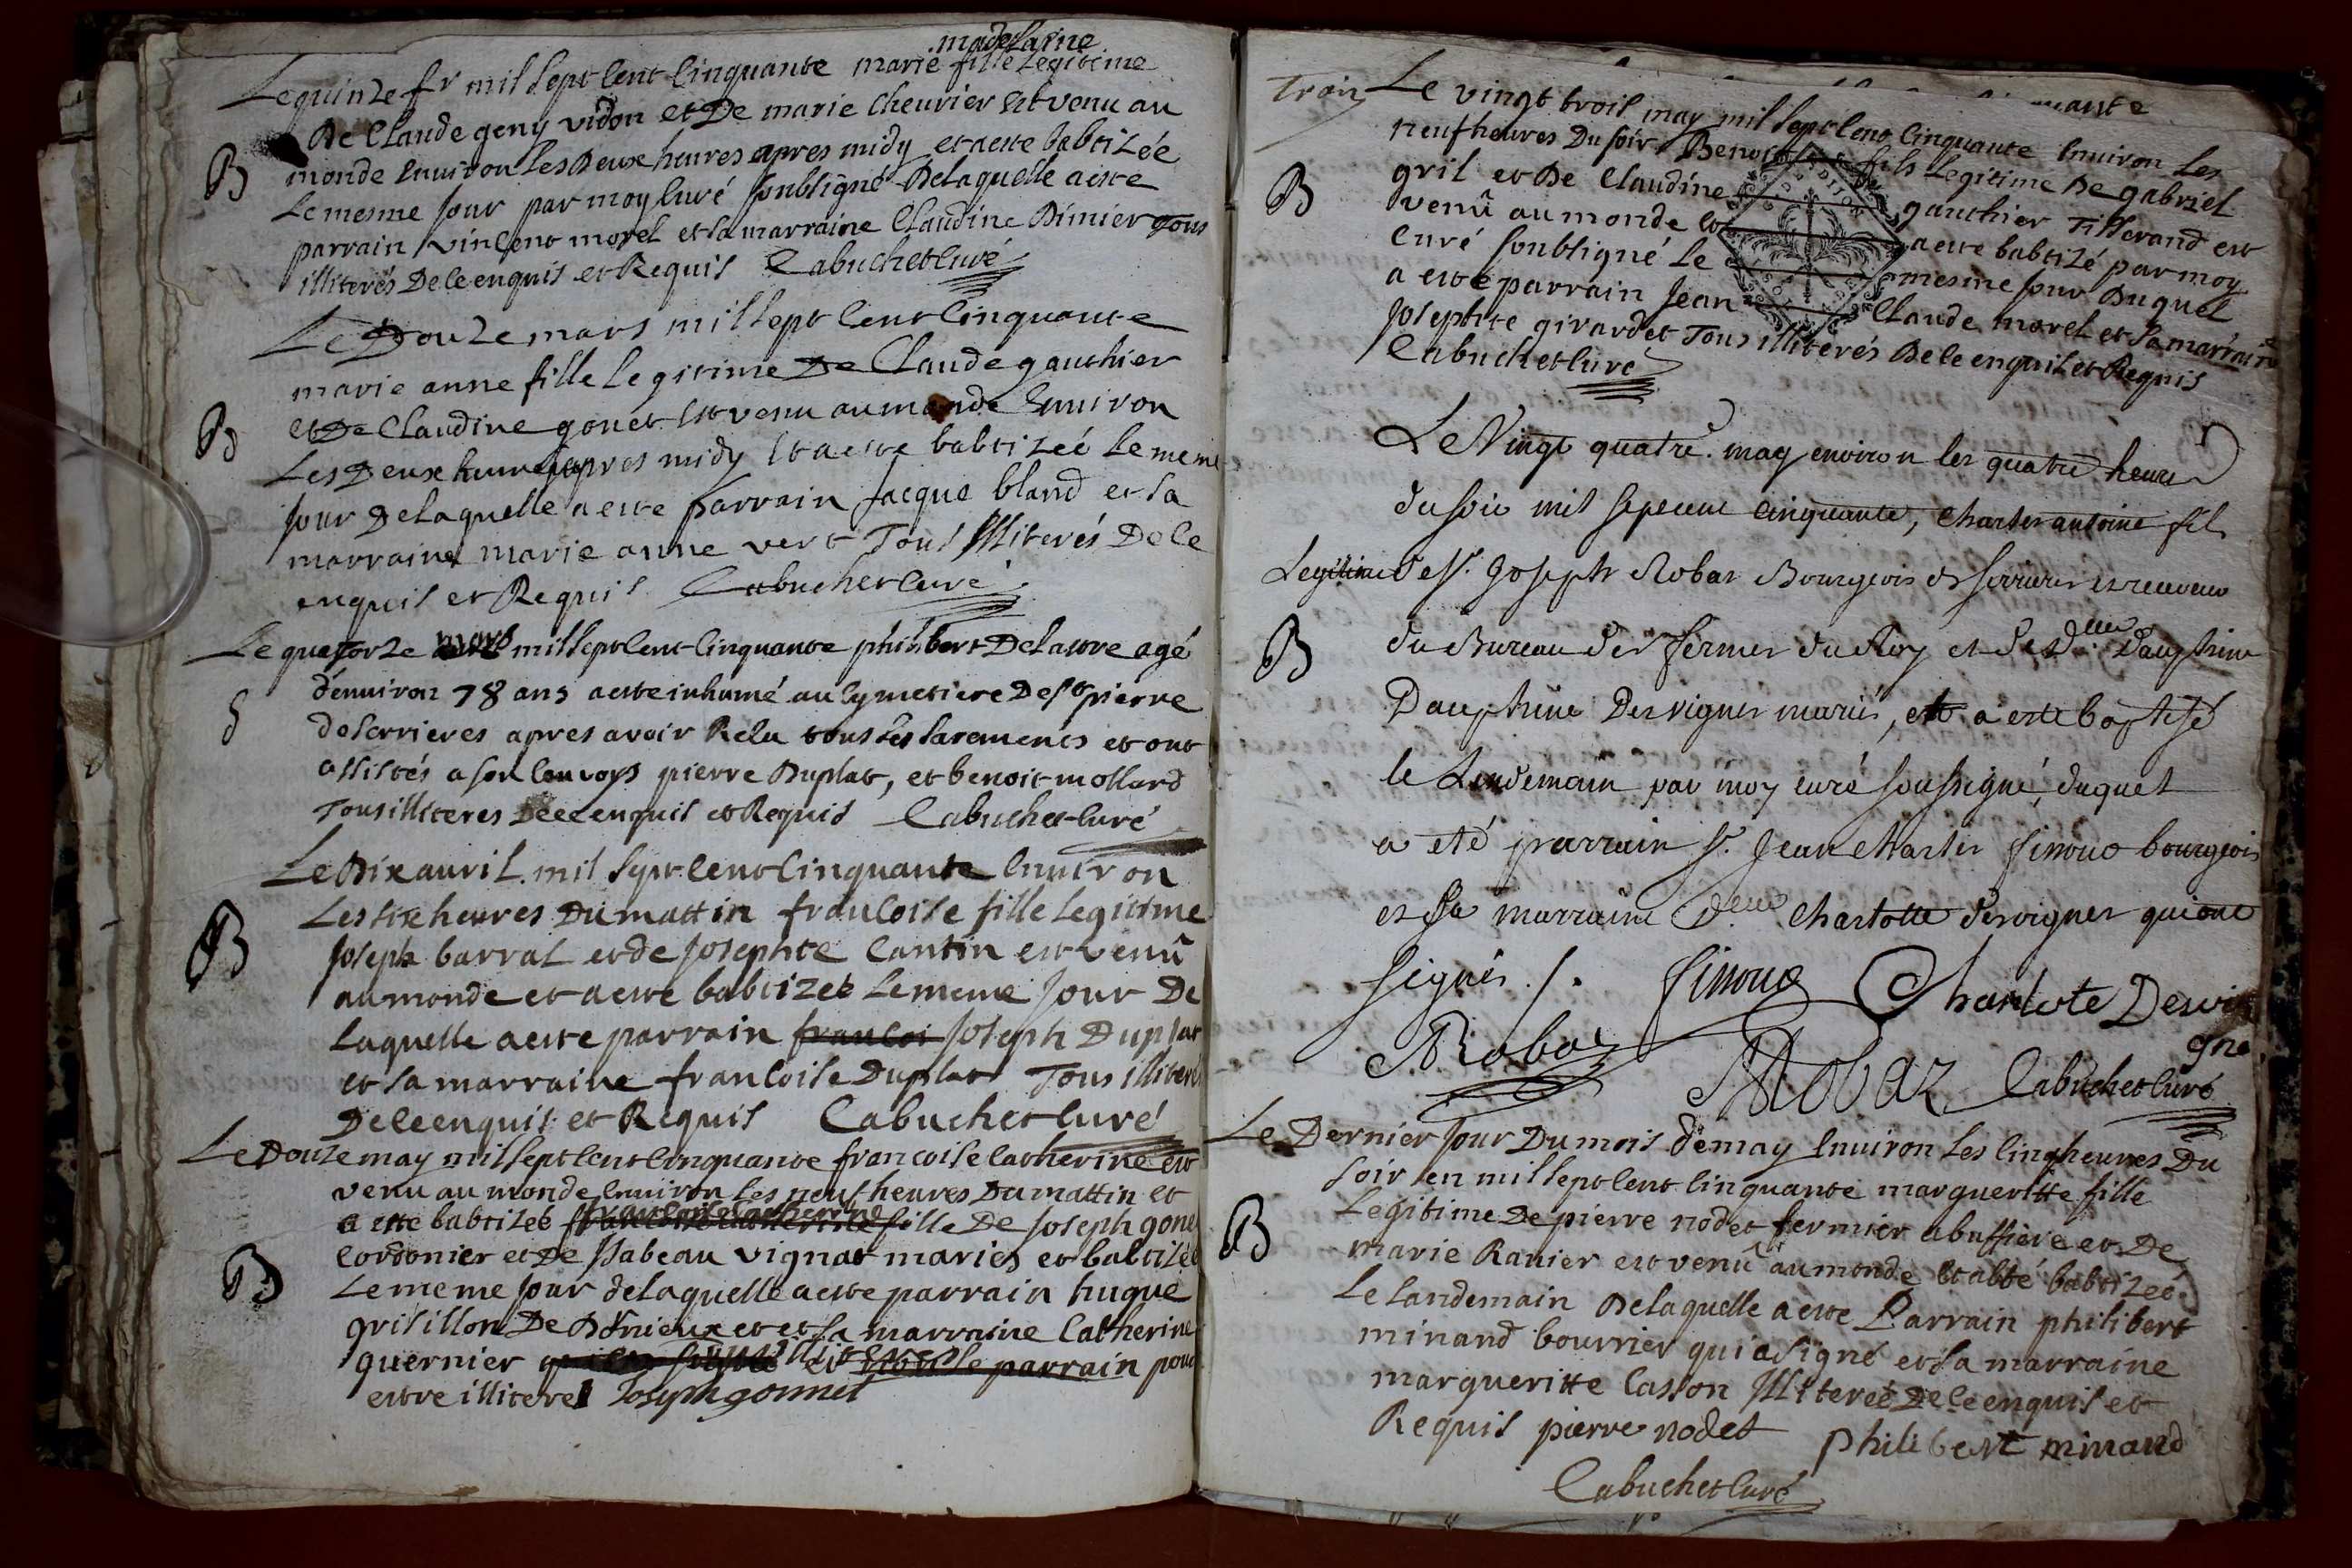 madelaine
Le quinze fr mil sept cent cinquante marie fille legitime
De Claude geny vidon et De marie cheurier est venu au
B monde enuiron les Deux heures apres midy et a este babtizée
Le mesme jour par moy curé soubsigné Delaquelle a este
parrain vincent morel et sa marraine Claudine Dimier Tous
illiterés De ce enquis et Requis Cabuchet curé
Le Douze mars mil sept cent cinquante
marie anne fille legitime De Claude gauthier
B et De Claudine gonet est venu au monde Enuiron
Les Deux heures apres midy Et a este babtizeé Le meme
jour De laquelle a este parrain Jacque bland et sa
marraine marie anne vert Tous Illiterés De ce
enquis et Requis Cabuchet curé
Le quatorze mars mil sept cent cinquante philibert Delatore agé
d'enuiron 78 ans a este inhumé au cymetiere De st pierre
S de serrieres apres avoir Recu tous Les sacrements et ont
assistés a son convoys pierre Duplat, et benoit mollard
Tous illiteres De ce enquis et Requis Cabuchet curé
Le Dix auril mil sept cent cinquante Enuiron
Les six heures Du mattin francoise fille legitime
B Joseph barral et de Josephte Cantin est venû
au monde et a este babtizeé Le meme jour De
Laquelle a este parrain francoi Joseph Duplat
et sa marraine francoise Duplat Tous illiterés
De ce enquis et Requis Cabuchet curé
Le Douze may mil sept cent cinquante francoise catherine est
venu au monde enuiron les neuf heures Du mattin et
francoise catherine
a este babtizeé fille De Joseph gonet
cordonier et De Isabeau vignat mariés et babtizeé
B Le meme jour de laquelle a este parrain hugue
grisillon De et sa marraine Catherine
guernier et parrain pour
estre illiteré Joseph gonnet
Le vingt trois may mil sept cent cinquante Enuiron Les
neuf heures Du soir Benoit fils Legitime De gabriel
B gril et De Claudine gauthier Tisserand est
venû au monde et a este babtizé par moy
curé soubsigné Le mesme jour Duquel
a esté parrain Jean Claude morel et sa marraine
Josephte girardet Tous illiterés De ce enquis et Requis
Cabuchet curé
Le Vingt quatre may environ les quatre heures
du soir mil sept cent cinquante, Charles antoine fils
Legitime de Sr. Joseph Robat Bourgeois de serrieres et receveur
B du Bureau des fermes du Roy et de Delle Dauphine
Dauphine Desvignes mariés, et a esté baptisé
le Lendemain par moy curé soussigné, duquel
a eté parrain Sr. Jean Charles Simoud bourgeois
et Sa marraine Delle Charlotte desvignes qui ont
signés /. Charlote Desvi
gne
Robat Robaz Cabuchet curé
Le Dernier jour Du mois de may Enuiron Les cinq heures Du
soir en mil sept cent cinquante margueritte fille
B Legitime De pierre nodet fermier a buffiere et De
marie Ranier est venû au monde Et a été babtizeé
Le landemain De laquelle a este Parrain philibert
minand bourrier qui a signé et sa marraine
margueritte Casson Illitereé De ce enquis et
Requis pierre nodet philibert minand
Cabuchet curé